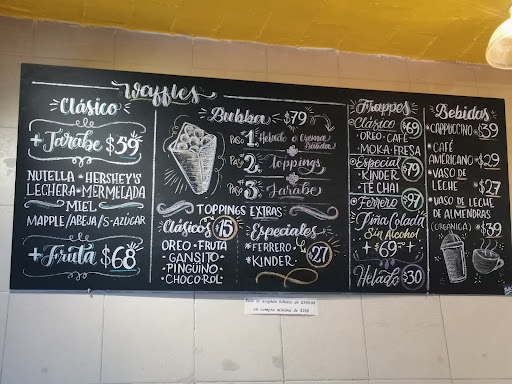 Waffles
Clásico
+Jarabe $59
NUTELLA • HERSHEY'S
LECHERA • MERMELADA
• MIEL
MAPPLE/ABEJA/S-AZÚCAR
+Fruta $68
Bubba $79
PASO 1. Helado o Crema Batida
PASO 2. Toppings
PASO 3. Jarabe
TOPPINGS EXTRAS
Clásicos $15
OREO • FRUTA
GANSITO
• PINGÜINO
CHOCO-ROL
Especiales
• FERRERO
• KINDER
$27
Frappes
Clásico $69
OREO • CAFÉ
MOKA • FRESA
Especial $79
KINDER
TÉ CHAI
Ferrero $97
Piña Colada
Sin Alcohol
$69
Helado $30
Bebidas
• CAPPUCCINO $39
• CAFÉ
AMERICANO $29
• VASO DE
LECHE $27
• VASO DE LECHE
DE ALMENDRAS
(ORGÁNICA) $39
en compra mínima de $200